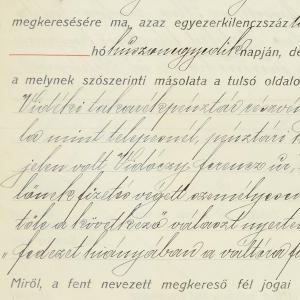 megkeresésére ma, azaz egyezerkilencszáz
hó huszonegyedik napján, de
a melynek szószerinti másolata a tulsó oldalo
Vidéki takarékpénztár részvén
la mint telepemnél, pénztári
jelen volt Vidóczy ferencz úr,
lömek fizetés végett személyesen
tőle a következő választ nyertem
„fedezet hiányában a váltóra fi
Miről, a fent nevezett megkereső fél jogai